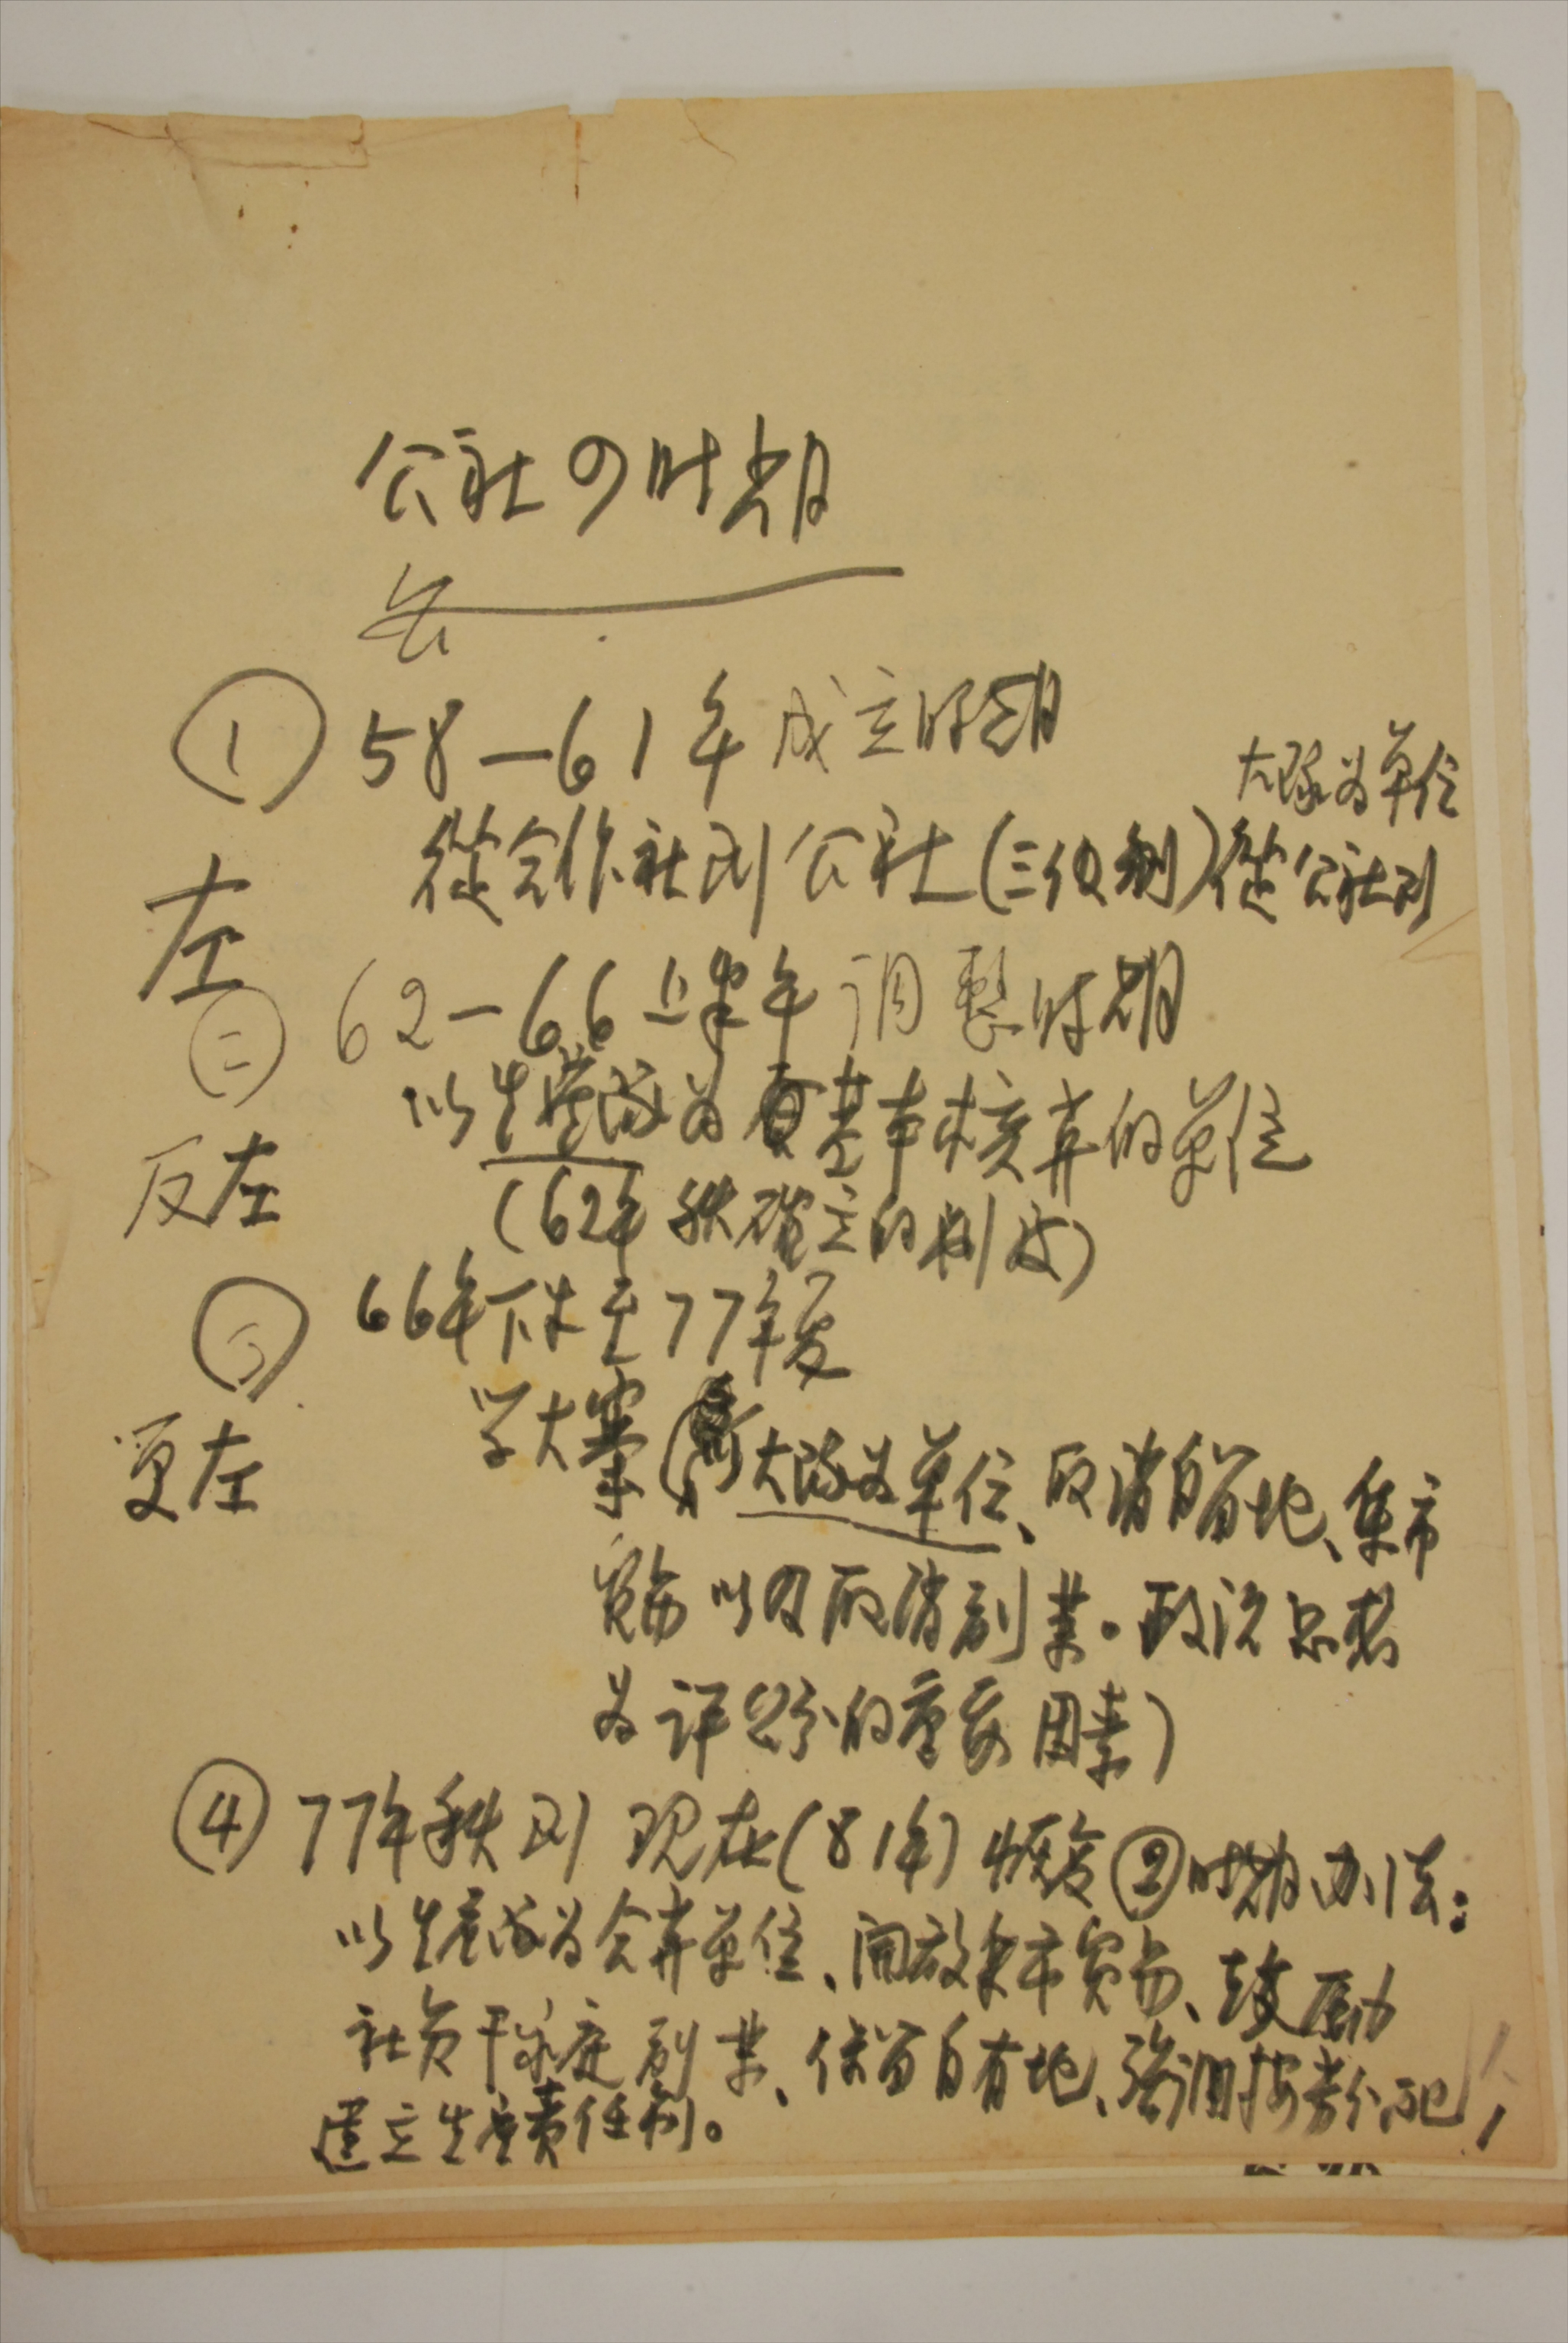 公社の时期
① 58—61年成立时期
大隊为单位
從合作社到公社(三级制)從公社到
左
㊁ 62—66上半年调整时期
以生産隊为基本核算的单位
反左
(62年秋確立的制度)
③ 66年下半至77年夏
学大寨(大隊为单位、取消自留地、集市
更左
貿易以及取消副業。政治思想
为评工分的重要因素)
④ 77年秋到现在(81年)恢复②时期办法:
以生産隊为会算单位、開放集市貿易、鼓励
社员干家庭副業、保留自有地、强调按劳分配,
建立生産责任制。